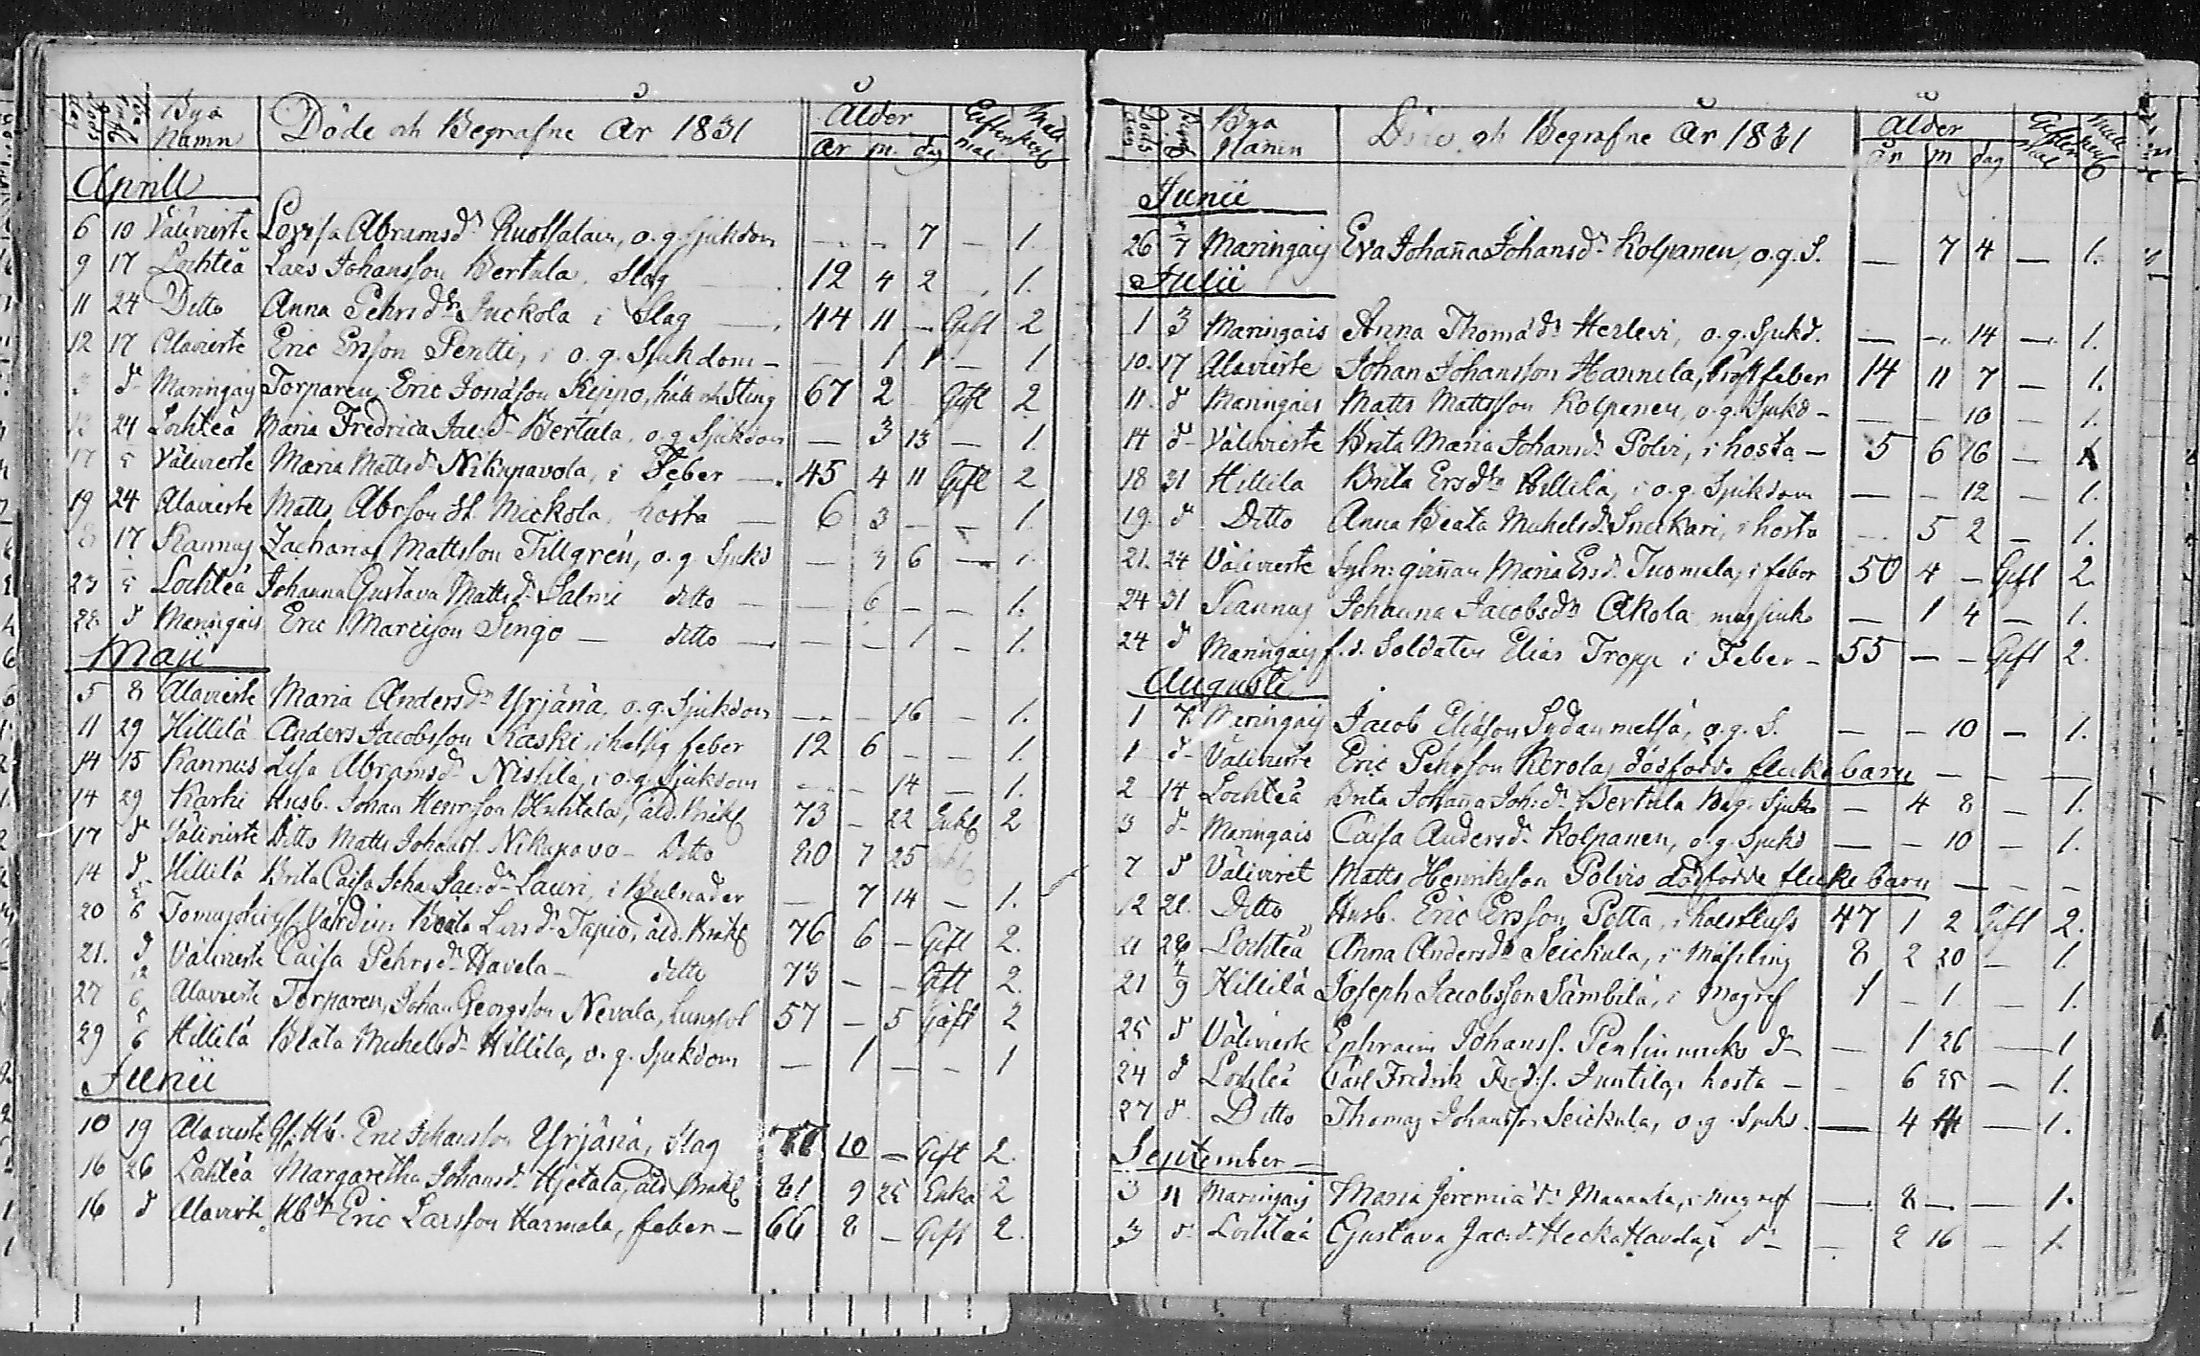 Döds dag Bya Namn Döde och Begrafne År 1831 Ålder År m. dag Giftermål
Aprill
6 10 Välivierte Lovisa Abramsdr Ruotsalain, o.g. sjukdom — — 7 — 1.
9 17 Lochteå Lars Johansson Bertula, Slag 12 4 2 1.
11 24 Ditto Anna Pehrsdr Juckola i Slag 44 11 — Gift 2
12 17 Alavierte Eric Ersson Pentti, i o.g. Sjukdom — — 1 1 — 1
d Maringais Torparen Eric Jonasson Kippo, håll och Sting 67 2 Gift 2
12 24 Lochteå Maria Fredrica Jac:dr Bertula, o.g. Sjukdom — 3 13 — 1.
17 Välivierte Maria Mattsdr Nikupavola, i Feber 45 4 11 Gift 2
19 24 Alavierte Matts Abrsson Mickola, hosta — 6 3 — — 1.
17 Kannus Zacharias Mattsson Tillgrén, o.g. Sjukd — 3 6 — 1.
23 Lochteå Johanna Gustava Mattsdr Salmi ditto — — 6 — — 1.
28 d Maringais Eric Marcisson Singo — ditto — — — 1 — 1.
Maji
5 8 Alavierte Maria Andersdr Yrjänä, o.g. Sjukdom — — 16 — 1.
11 29 Hillilä Anders Jacobsson Kaski, i hetsig feber 12 6 — — 1.
14 15 Kannus Lisa Abramsdr Niskila, i o.g. Sjukdom — — 14 — 1.
14 29 Karhi Husb. Johan Henrsson Huhtala, åld. bräkl 73 — 22 Enkl 2
17 d Välivierte Ditto Matts Johans. Nikupavo — Ditto 80 7 25
14 d Hillilä Brita Caisa Joha Jac:dr Lauri, i Bulnader — 7 14 — 1.
20 Beata Larsdr Tapio, åld. bräkl 76 6 — Gift 2.
21. d Välivierte Caisa Pehrsdr Havela — ditto 73 — — Gift 2.
27 Alavierte Torparen, Johan Georgsson Nevala, Lungsot 57 — 5 Gift 2
29 Hillilä Beata Michelsdr Hillilä, o.g. Sjukdom — 1 — — 1
Junii
10 19 Alavierte Eric Johansson Yrjänä, Slag 10 — Gift 2.
16 26 Lochteå Margaretha Johansdr Hjetala, åld. bräkl 81 9 25 Enka 2
16 d Alavierte Eric Larsson Harmala, feber — 66 8 — Gift 2.
Bya Namn Döde och Begrafne År 1831 Ålder År m dag Giftermål
Junii
26 Maringais Eva Johanna Johansdr Kolpanen, o.g.S. — 7 4 — 1.
Julii
1 3 Maringais Anna Thomadr Herlevi, o.g. Sjukd. — — 14 — 1.
10. 17 Alavierte Johan Johansson Hannila, bröstfeber 14 11 7 — 1.
11. d Maringais Matts Mattsson Kolpanen, o.g. Sjukd — — — 10 — 1.
14 d Välivierte Brita Maria Johansdr Polvi, i hosta — 5 6 16 — 1
18 31 Hillila Brita Ersdtr Hillilä, i o.g. Sjukdom — — 12 — 1.
19. d Ditto Anna Beata Michelsdr Snickari, i hosta — 5 2 — 1.
21. 24 Välivierte Maria Ersd. Tuomala, i feber 50 4 — Gift 2.
24 31 Kannus Johanna Jacobsdr Akola magsjuk — 1 4 — 1.
24 d Maringais f.d. Soldaten Elias Tropp i Feber — 55 — — Gift 2.
Augusti
1 7 Maringais Jacob Eliasson Sydänmetsä, o.g. S. — — 10 — 1.
1 d Välivierte Eric Pehrsson Kerola, dödfödde flickebarn — — —
2 14 Lochteå Brita Johanna Joh:dr Bertula Mag. Sjuk — 4 8 — 1.
3 d Maringais Caisa Andersdr Kolpanen, o.g. Sjukd — — 10 — 1.
7 d Väliviret Matts Henriksson Polvis dödfödde flickebarn — — —
12 21 Ditto Husb. Eric Ersson Potta, i halsfluss 47 1 2 Gift 2.
21 28 Lochteå Anna Andersdr Seickula, i Mässling 8 2 20 — 1.
21 Hillilä Joseph Jacobsson Sämbilä, i Magref 1 — 1 — 1.
25 d Välivierte Ephraim Johanss. d — 1 26 — 1
24 d Lochteå Carl Fredrik Fred:s. Juntila, i hosta — 6 25 — 1.
27 d Ditto Thomas Johansson Seickula, o.g. Sjukd. — 4 — 1.
September
3 11 Maringais Maria Jeremiädr i magref — 8 — — 1.
3 d Lochteå Gustava Jac:dr d — — 2 16 — 1.